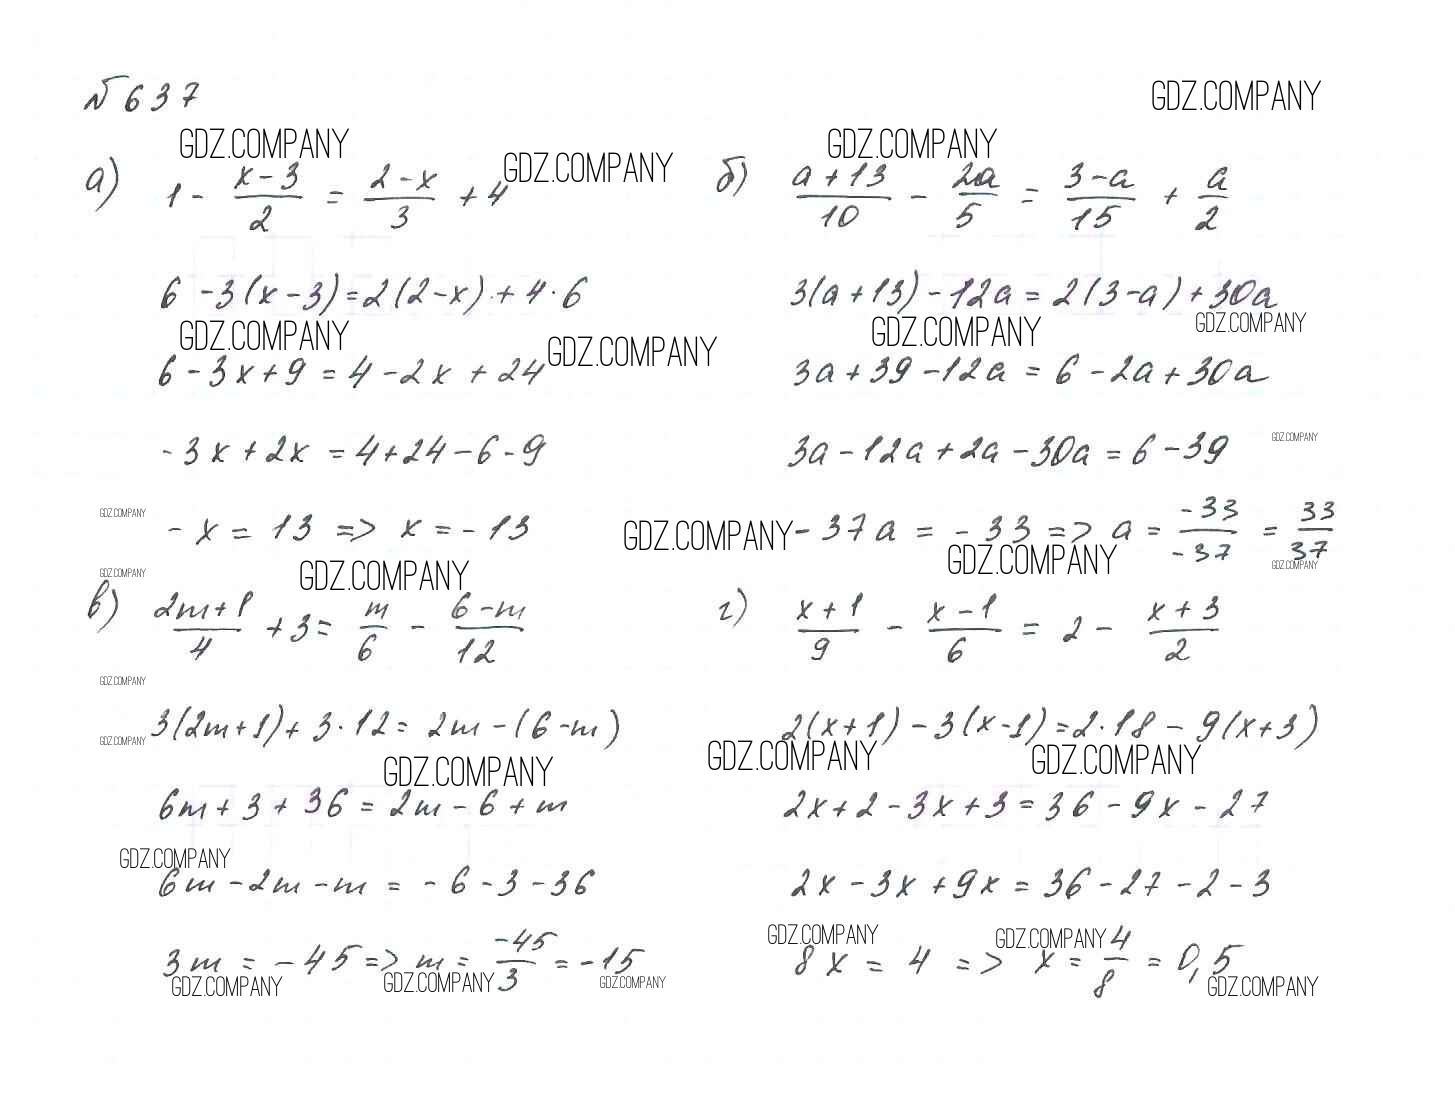 № 637
GDZ.COMPANY
GDZ.COMPANY
GDZ.COMPANY
GDZ.COMPANY
а) 1 - (x-3)/2 = (2-x)/3 + 4
б) (a+13)/10 - 2a/5 = (3-a)/15 + a/2
6 - 3(x-3) = 2(2-x) + 4·6
3(a+13) - 12a = 2(3-a) + 30a
GDZ.COMPANY
GDZ.COMPANY
GDZ.COMPANY
GDZ.COMPANY
6 - 3x + 9 = 4 - 2x + 24
3a + 39 - 12a = 6 - 2a + 30a
-3x + 2x = 4 + 24 - 6 - 9
3a - 12a + 2a - 30a = 6 - 39
GDZ.COMPANY
GDZ.COMPANY
-x = 13 => x = -13
GDZ.COMPANY
-37a = -33 => a = -33/-37 = 33/37
GDZ.COMPANY
GDZ.COMPANY
GDZ.COMPANY
GDZ.COMPANY
в) (2m+1)/4 + 3 = m/6 - (6-m)/12
г) (x+1)/9 - (x-1)/6 = 2 - (x+3)/2
GDZ.COMPANY
3(2m+1) + 3·12 = 2m - (6-m)
2(x+1) - 3(x-1) = 2·18 - 9(x+3)
GDZ.COMPANY
GDZ.COMPANY
GDZ.COMPANY
GDZ.COMPANY
6m + 3 + 36 = 2m - 6 + m
2x + 2 - 3x + 3 = 36 - 9x - 27
GDZ.COMPANY
6m - 2m - m = -6 - 3 - 36
2x - 3x + 9x = 36 - 27 - 2 - 3
GDZ.COMPANY
GDZ.COMPANY
3m = -45 => m = -45/3 = -15
8x = 4 => x = 4/8 = 0,5
GDZ.COMPANY
GDZ.COMPANY
GDZ.COMPANY
GDZ.COMPANY